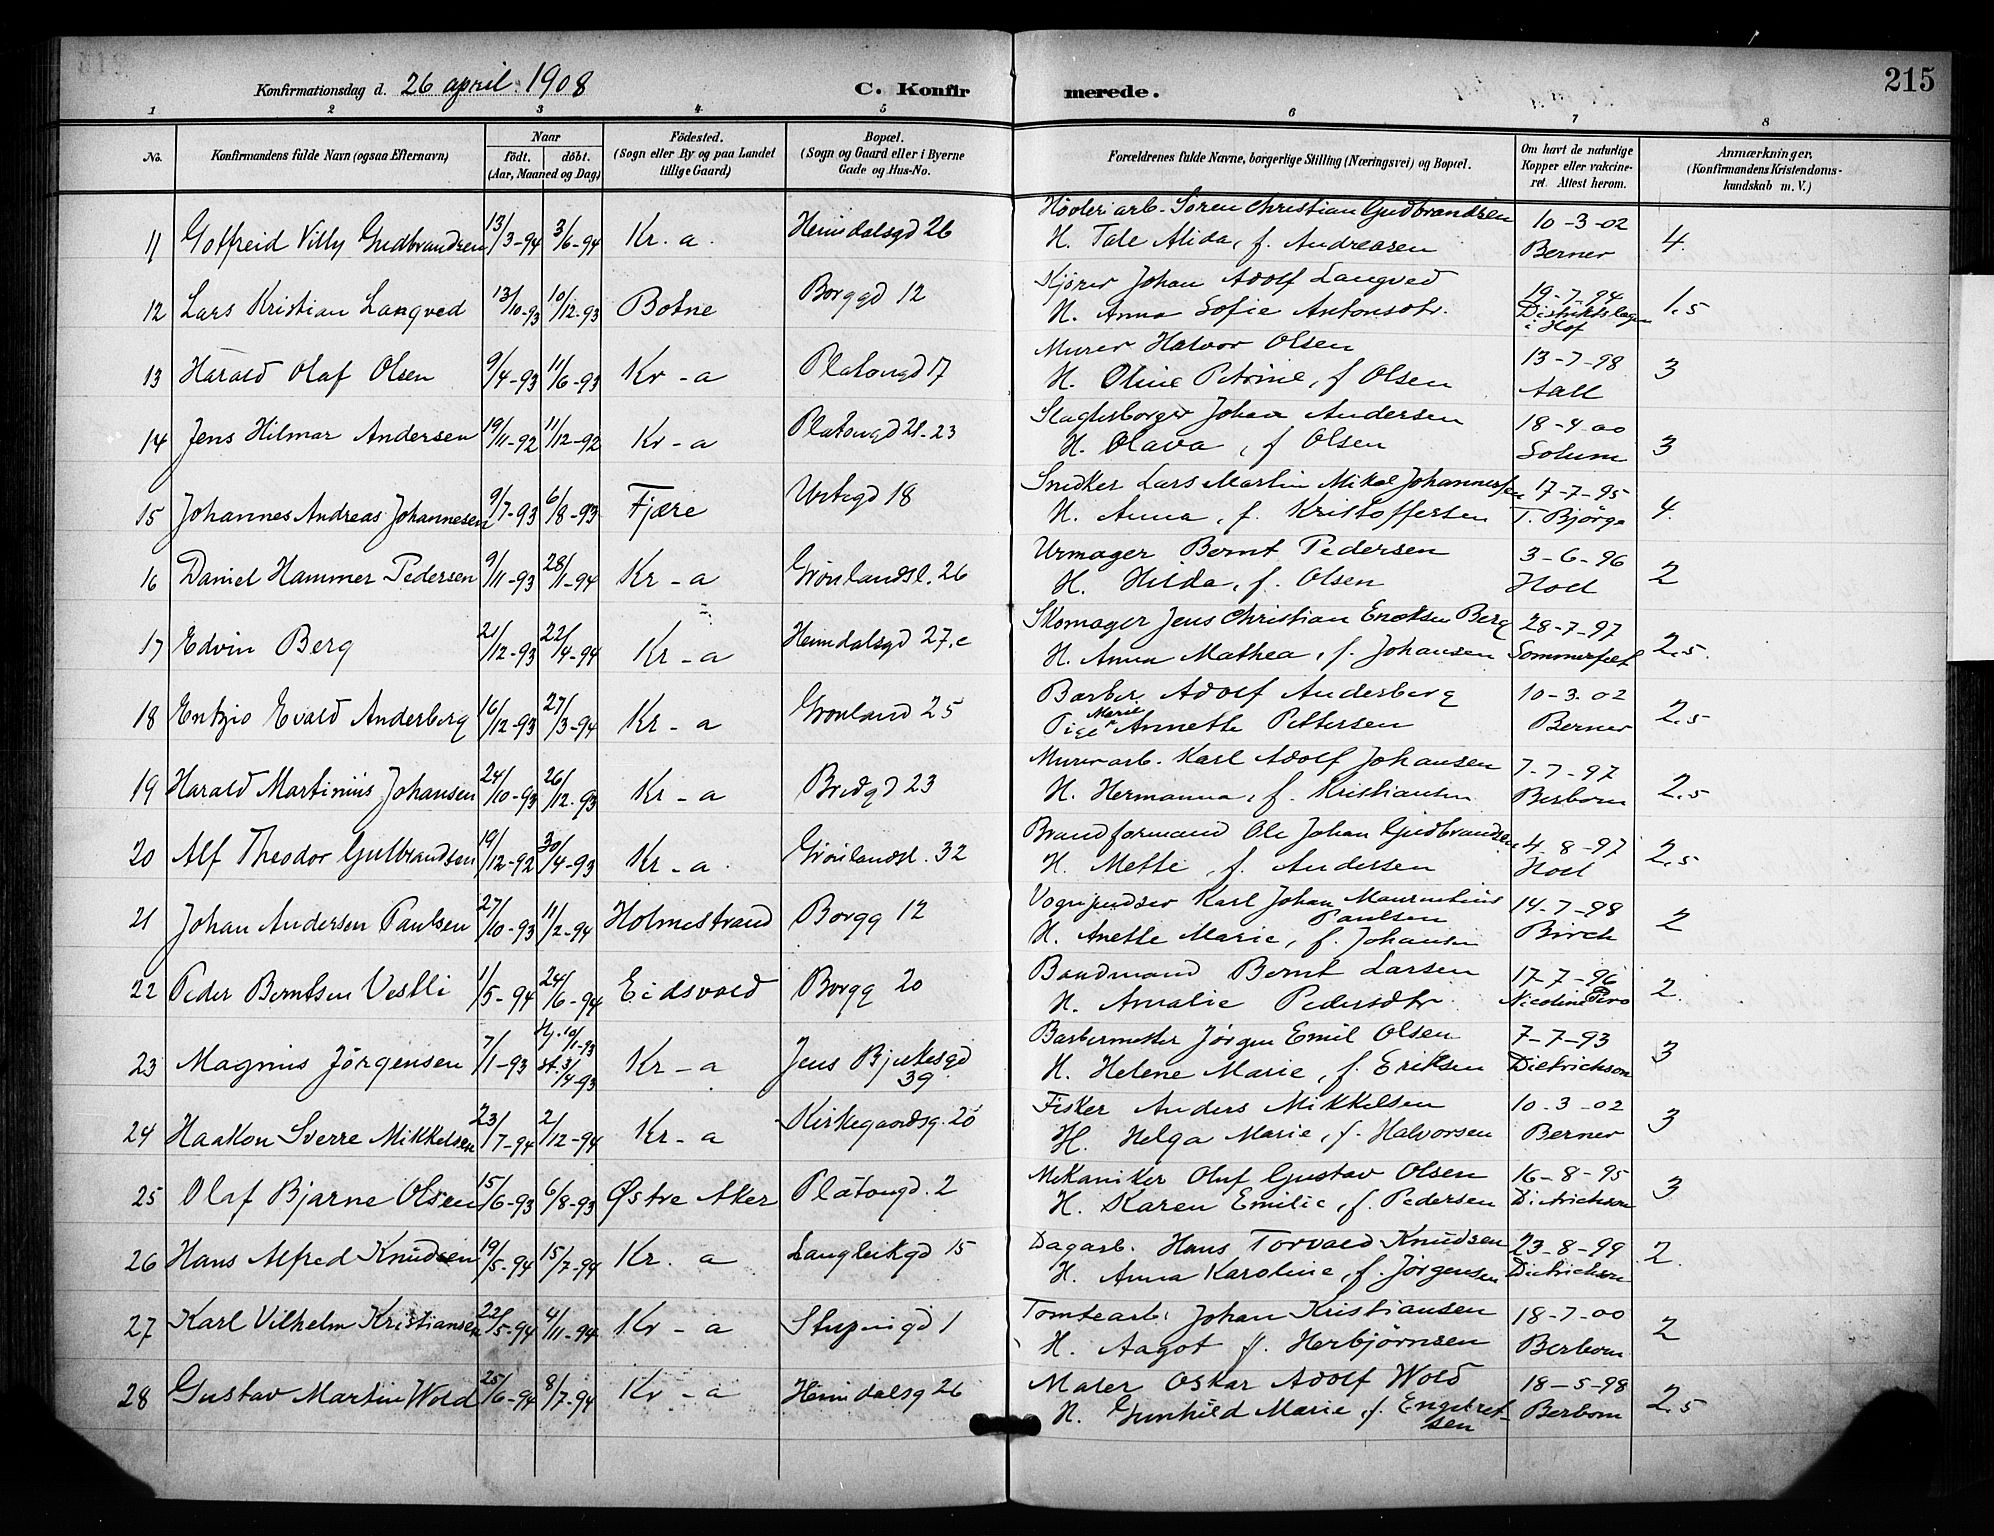 215
Konfirmationsdag d. 26 april 1908
C. Konfirmerede.
1 2 3 4 5 6 7 8
No.
Konfirmandens fulde Navn (ogsaa Efternavn)
Naar
født. døbt.
(Aar, Maaned og Dag)
Fødested.
(Sogn eller By og paa Landet
tillige Gaard)
Bopæl.
(Sogn og Gaard eller i Byerne
Gade og Hus-No.
Forældrenes fulde Navne, borgerlige Stilling (Næringsvei) og Bopæl.
Om havt de naturlige
Kopper eller vakcine-
ret. Attest herom.
Anmærkninger.
(Konfirmandens Kristendoms-
kundskab m. V.)
11 Gotfreid Villy Gudbrandsen 13/3-94 3/6-94 Kr. a. Heimdalsgd 26 Søren Christian Gudbrandsen 10-3-02
H. Tale Alida, f. Andreasen Berner 4.
12 Lars Kristian Langved 13/10-93 10/12-93 Botne Borggd 12 Kjører Johan Adolf Langved 19-7-94
H. Anna Sofie Antonsdtr. Distriktslægen i Hof 1.5
13 Harald Olaf Olsen 9/4-93 11/6-93 Kr-a Platougd 17 Murer Halvor Olsen 13-7-98
H. Oline Petrine, f Olsen Aall 3
14 Jens Hilmar Andersen 19/11-92 11/12-92 Kr-a Platougd 21-23 Slagterborger Johan Andersen 18-4-00
H. Olava, f Olsen Solum 3
15 Johannes Andreas Johannesen 9/7-93 6/8-93 Fjære Urtegd 18 Snedker Lars Martin Mikal Johannesen 17-7-95
H. Anna, f. Kristoffersen T. Bjørge 4.
16 Daniel Hammer Pedersen 9/11-93 28/1-94 Kr-a Grønlandsl. 26 Urmager Bernt Pedersen 3-6-96
H. Hilda, f. Olsen Hoel 2
17 Edvin Berg 21/12-93 22/4-94 Kr-a Heimdalsgd 27,c Skomager Jens Christian Enoksen Berg 28-7-97
H. Anna Mathea, f. Johansen Sommerfelt 2,5.
18 Evald Anderberg 16/12-93 27/3-94 Kr-a Grønland 25 Barber Adolf Anderberg 10-3-02
Pige Marie Annette Pettersen Berner 2,5
19 Harald Martinius Johansen 24/10-93 26/12-93 Kr-a Bredgd 23 Murerarb. Karl Adolf Johansen 7-7-97
H. Hermanna, f. Kristiansen Berbom 2,5
20 Alf Theodor Gulbrandsen 19/12-92 30/4-93 Kr-a Grønlandsl. 32 Brandformand Ole Johan Gudbrandsen 4-8-97
H. Mette, f. Andersen Hoel 2,5
21 Johan Andersen Paulsen 27/10-93 11/2-94 Holmestrand Borgg 12 Vognpudser Karl Johan Paulsen 14-7-98
H. Anette Marie, f. Johansen Birch 2
22 Peder Berntsen Vestli 1/5-94 24/6-94 Eidsvold Borgg 20 Baadmand Bernt Larsen 17-7-96
H. Amalie Pedersdtr. Nicoline 2.
23 Magnus Jørgensen 7/1-93 Hj. 10/1-93 st. 3/4-93 Kr-a Jens Bjelkesgd 39 Barbermester Jørgen Emil Olsen 7-7-93
H. Helene Marie, f. Eriksen Dietrichson 3
24 Haakon Sverre Mikkelsen 23/7-94 2/12-94 Kr-a Kirkegaardsg. 20 Fisker Anders Mikkelsen 10-3-02
H. Helga Marie, f. Halvorsen Berner 3
25 Olaf Bjarne Olsen 15/6-93 6/8-93 Østre Aker Platougd. 2 Mekaniker Oluf Gustav Olsen 16-8-95
H. Karen Emilie, f. Pedersen Dietrichson 3
26 Hans Alfred Knudsen 19/5-94 15/7-94 Kr. a Langleikgd 15 Dagarb. Hans Torvald Knudsen 23-8-99
H. Anna Karoline, f. Jørgensen Dietrichson 2.
27 Karl Vilhelm Kristiansen 22/5-94 4/11-94 Kr-a Stupingd 1 Tomtearb. Johan Kristiansen 18-7-00
H. Aagot f. Herbjørnsen Berbom 2
28 Gustav Martin Wold 25/6-94 8/7-94 Kr-a Heimdalsg 26 Maler Oskar Adolf Wold 18-5-98
H. Gunhild Marie, f. Engebretsen Berbom 2,5